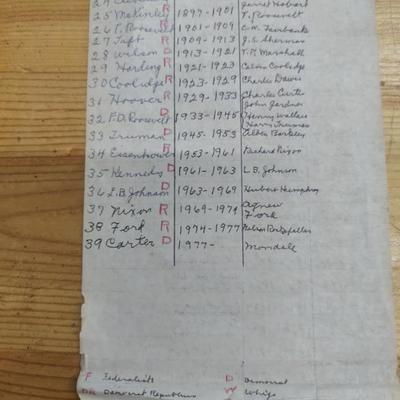 25 McKinley R 1897-1901 Garret Hobart
26 T. Roosevelt R 1901-1909 T. Roosevelt
27 Taft R 1909-1913 C.W. Fairbanks
28 Wilson D 1913-1921 J.S. Sherman
29 Harding R 1921-1923 T.R. Marshall
30 Coolidge R 1923-1929 Calvin Coolidge
31 Hoover R 1929-1933 Charles Dawes
Charles Curtis
32 F.D. Roosevelt D 1933-1945 John Gardner
Henry Wallace
Harry Truman
33 Truman D 1945-1953 Alben Barkley
34 Eisenhower R 1953-1961 Richard Nixon
35 Kennedy D 1961-1963 L.B. Johnson
36 L.B. Johnson D 1963-1969 Hubert Humphrey
37 Nixon R 1969-1974 Agnew
Ford
38 Ford R 1974-1977 Nelson Rockefeller
39 Carter D 1977- Mondale
F Federalists D Democrat
DR Democrat Republicans W Whigs